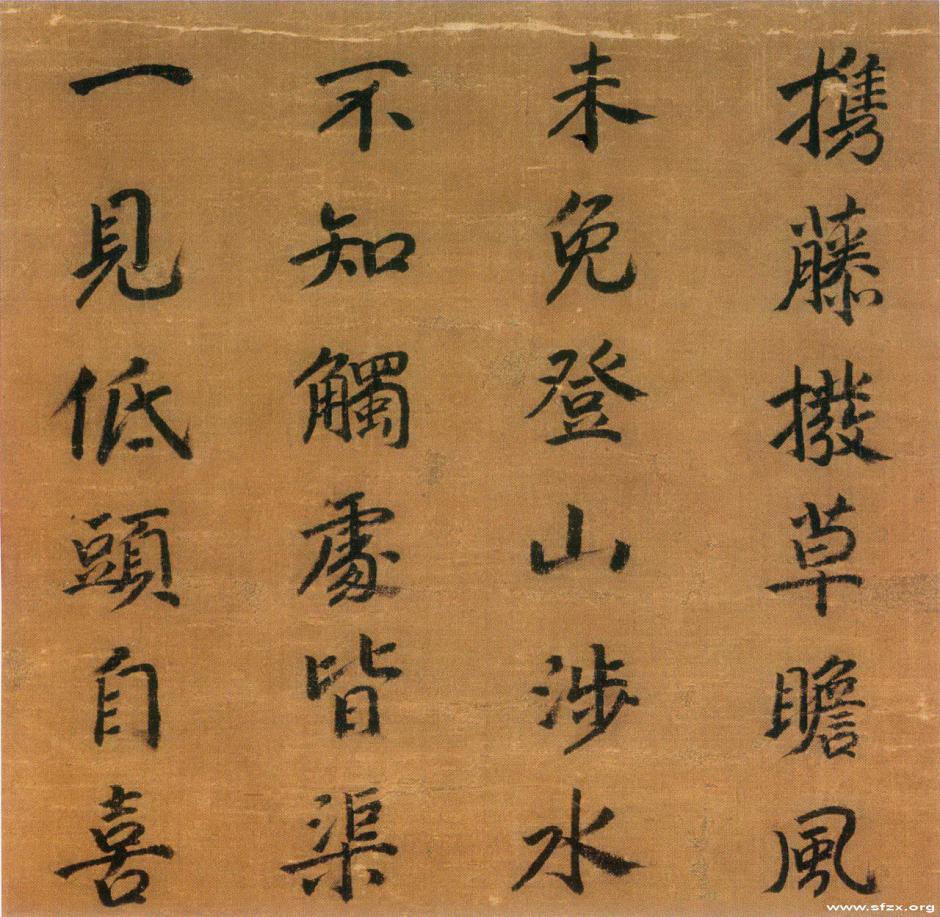 携藤撥草瞻風
未免登山涉水
不知觸處皆渠
一見低頭自喜
www.sfzx.org